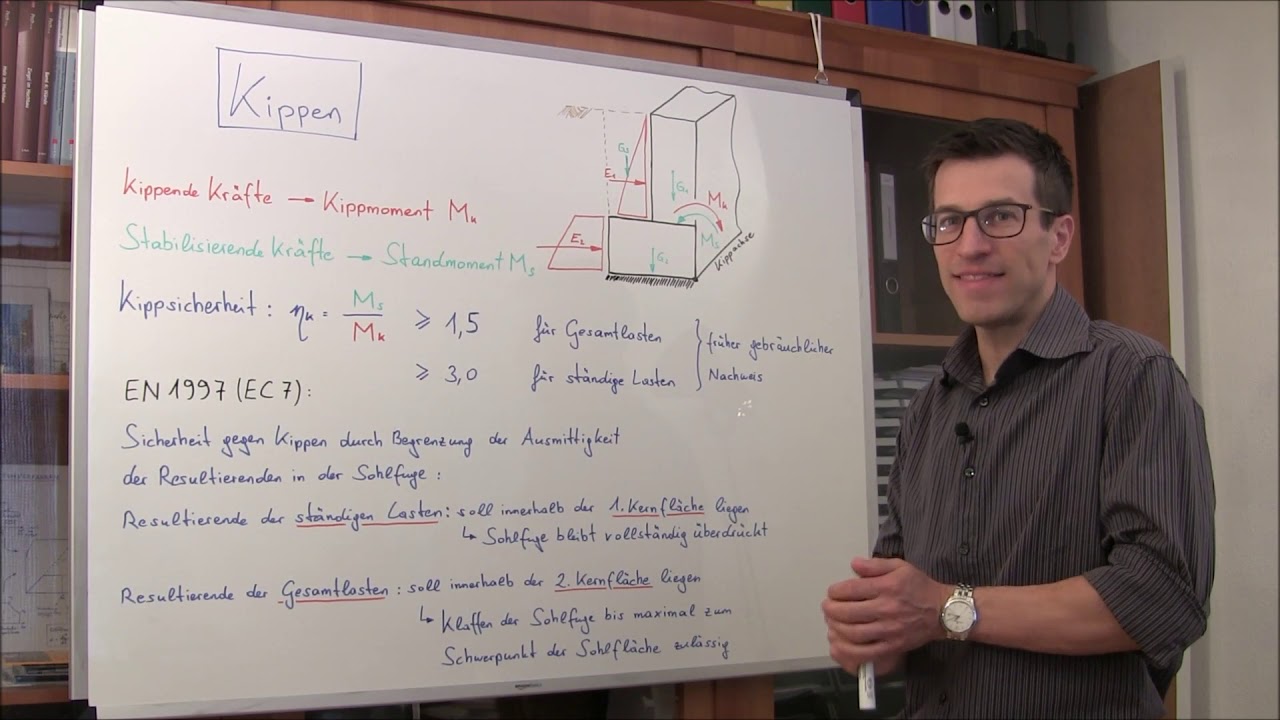 Kippen
Kippende Kräfte → Kippmoment Mk
Stabilisierende Kräfte → Standmoment Ms
Kippsicherheit : ηk = Ms / Mk ≥ 1,5 für Gesamtlasten
≥ 3,0 für ständige Lasten
früher gebräuchlicher
Nachweis
G3
E1
G1
Mk
Ms
E2
G2
Kippachse
EN 1997 (EC 7):
Sicherheit gegen Kippen durch Begrenzung der Ausmittigkeit
der Resultierenden in der Sohlfuge :
Resultierende der ständigen Lasten : soll innerhalb der 1. Kernfläche liegen
↳ Sohlfuge bleibt vollständig überdrückt
Resultierende der Gesamtlasten : soll innerhalb der 2. Kernfläche liegen
↳ Klaffen der Sohlfuge bis maximal zum
Schwerpunkt der Sohlfläche zulässig